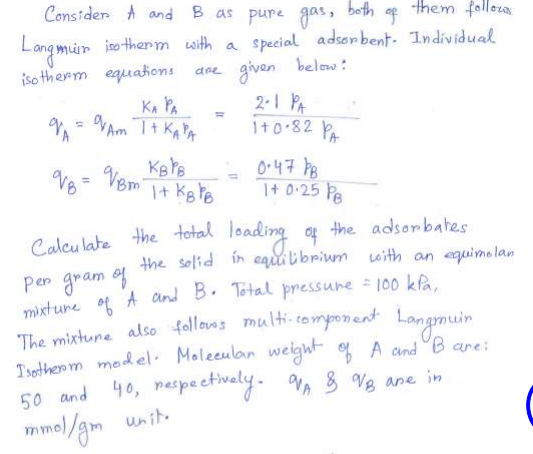 Consider A and B as pure gas, both of them follows
Langmuir isotherm with a special adsorbent. Individual
isotherm equations are given below:
q_A = q_Am K_A P_A / 1 + K_A P_A = 2.1 P_A / 1 + 0.82 P_A
q_B = q_Bm K_B P_B / 1 + K_B P_B = 0.47 P_B / 1 + 0.25 P_B
Calculate the total loading of the adsorbates
per gram of the solid in equilibrium with an equimolar
mixture of A and B. Total pressure = 100 kPa,
The mixture also follows multi-component Langmuir
Isotherm model. Molecular weight of A and B are:
50 and 40, respectively. q_A & q_B are in
mmol/gm unit.